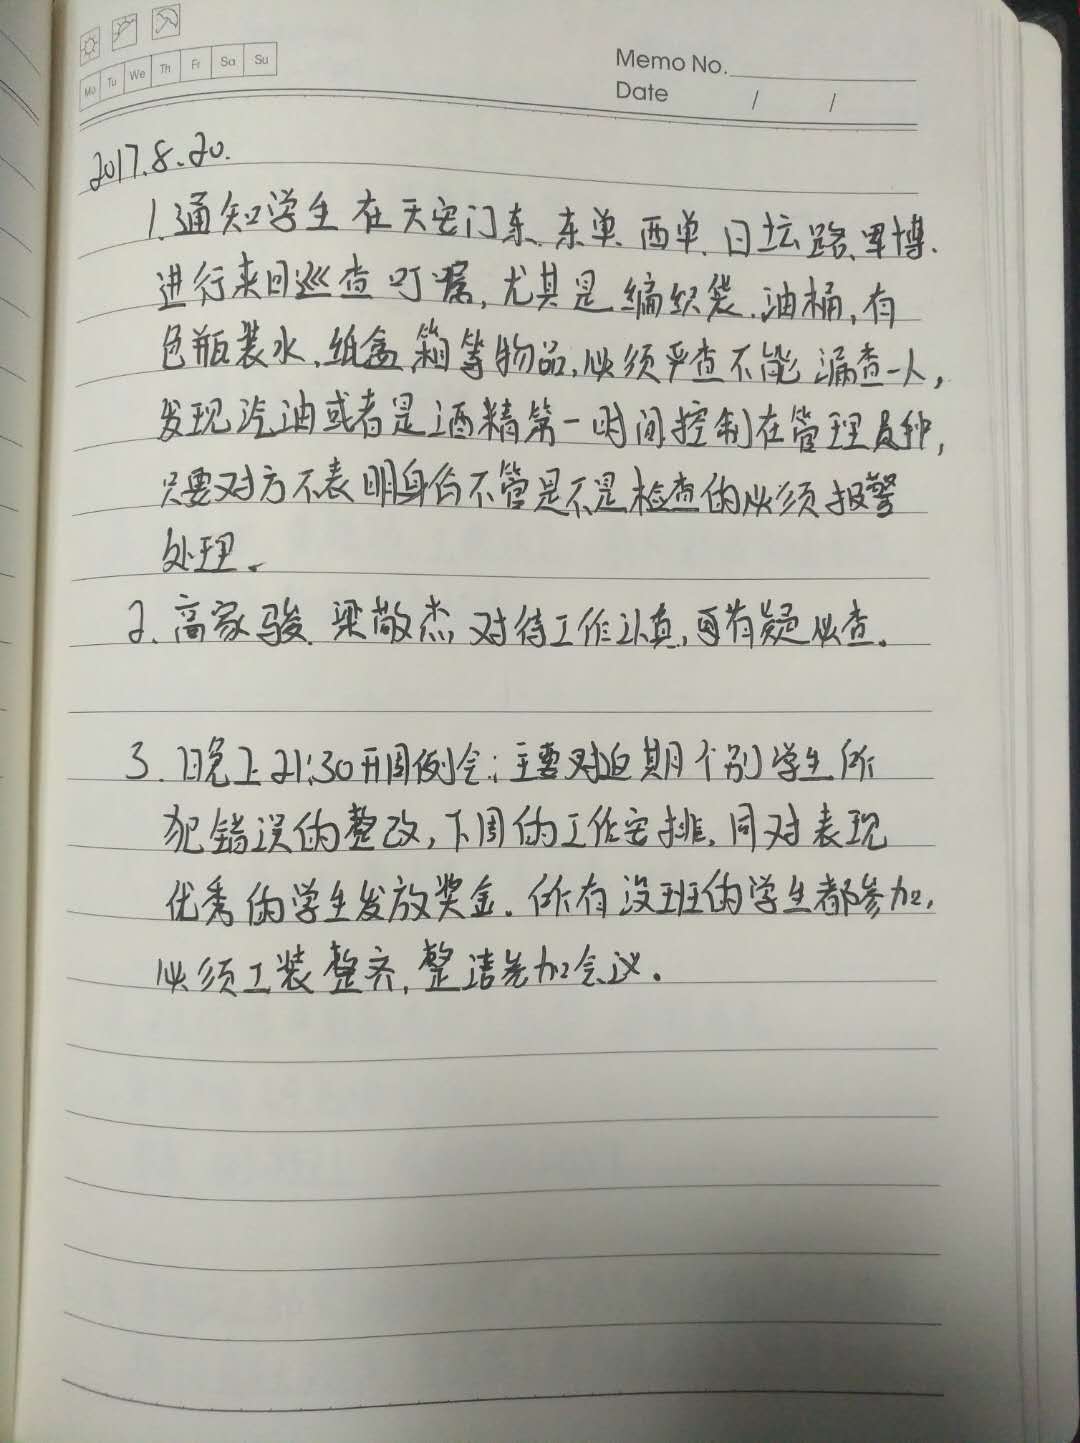 Mo Tu We Th Fr Sa Su
Memo No.
Date / /
2017.8.20.
1.通知学生在天安门东、东单、西单、日坛路、军博、
进行来回巡查叮嘱,尤其是编织袋、油桶,有
色瓶装水、纸盒箱等物品,必须严查不能漏查一人,
发现汽油或者是酒精第一时间控制在管理员种,
只要对方不表明身份不管是不是检查的必须报警
处理。
2、高家骏、梁敬杰对待工作认真,可有疑必查。
3、晚上21:30开周例会:主要对近期个别学生所
犯错误的整改,下周的工作安排,同对表现
优秀的学生发放奖金。所有没班的学生都参加,
必须工装整齐,整洁参加会议。